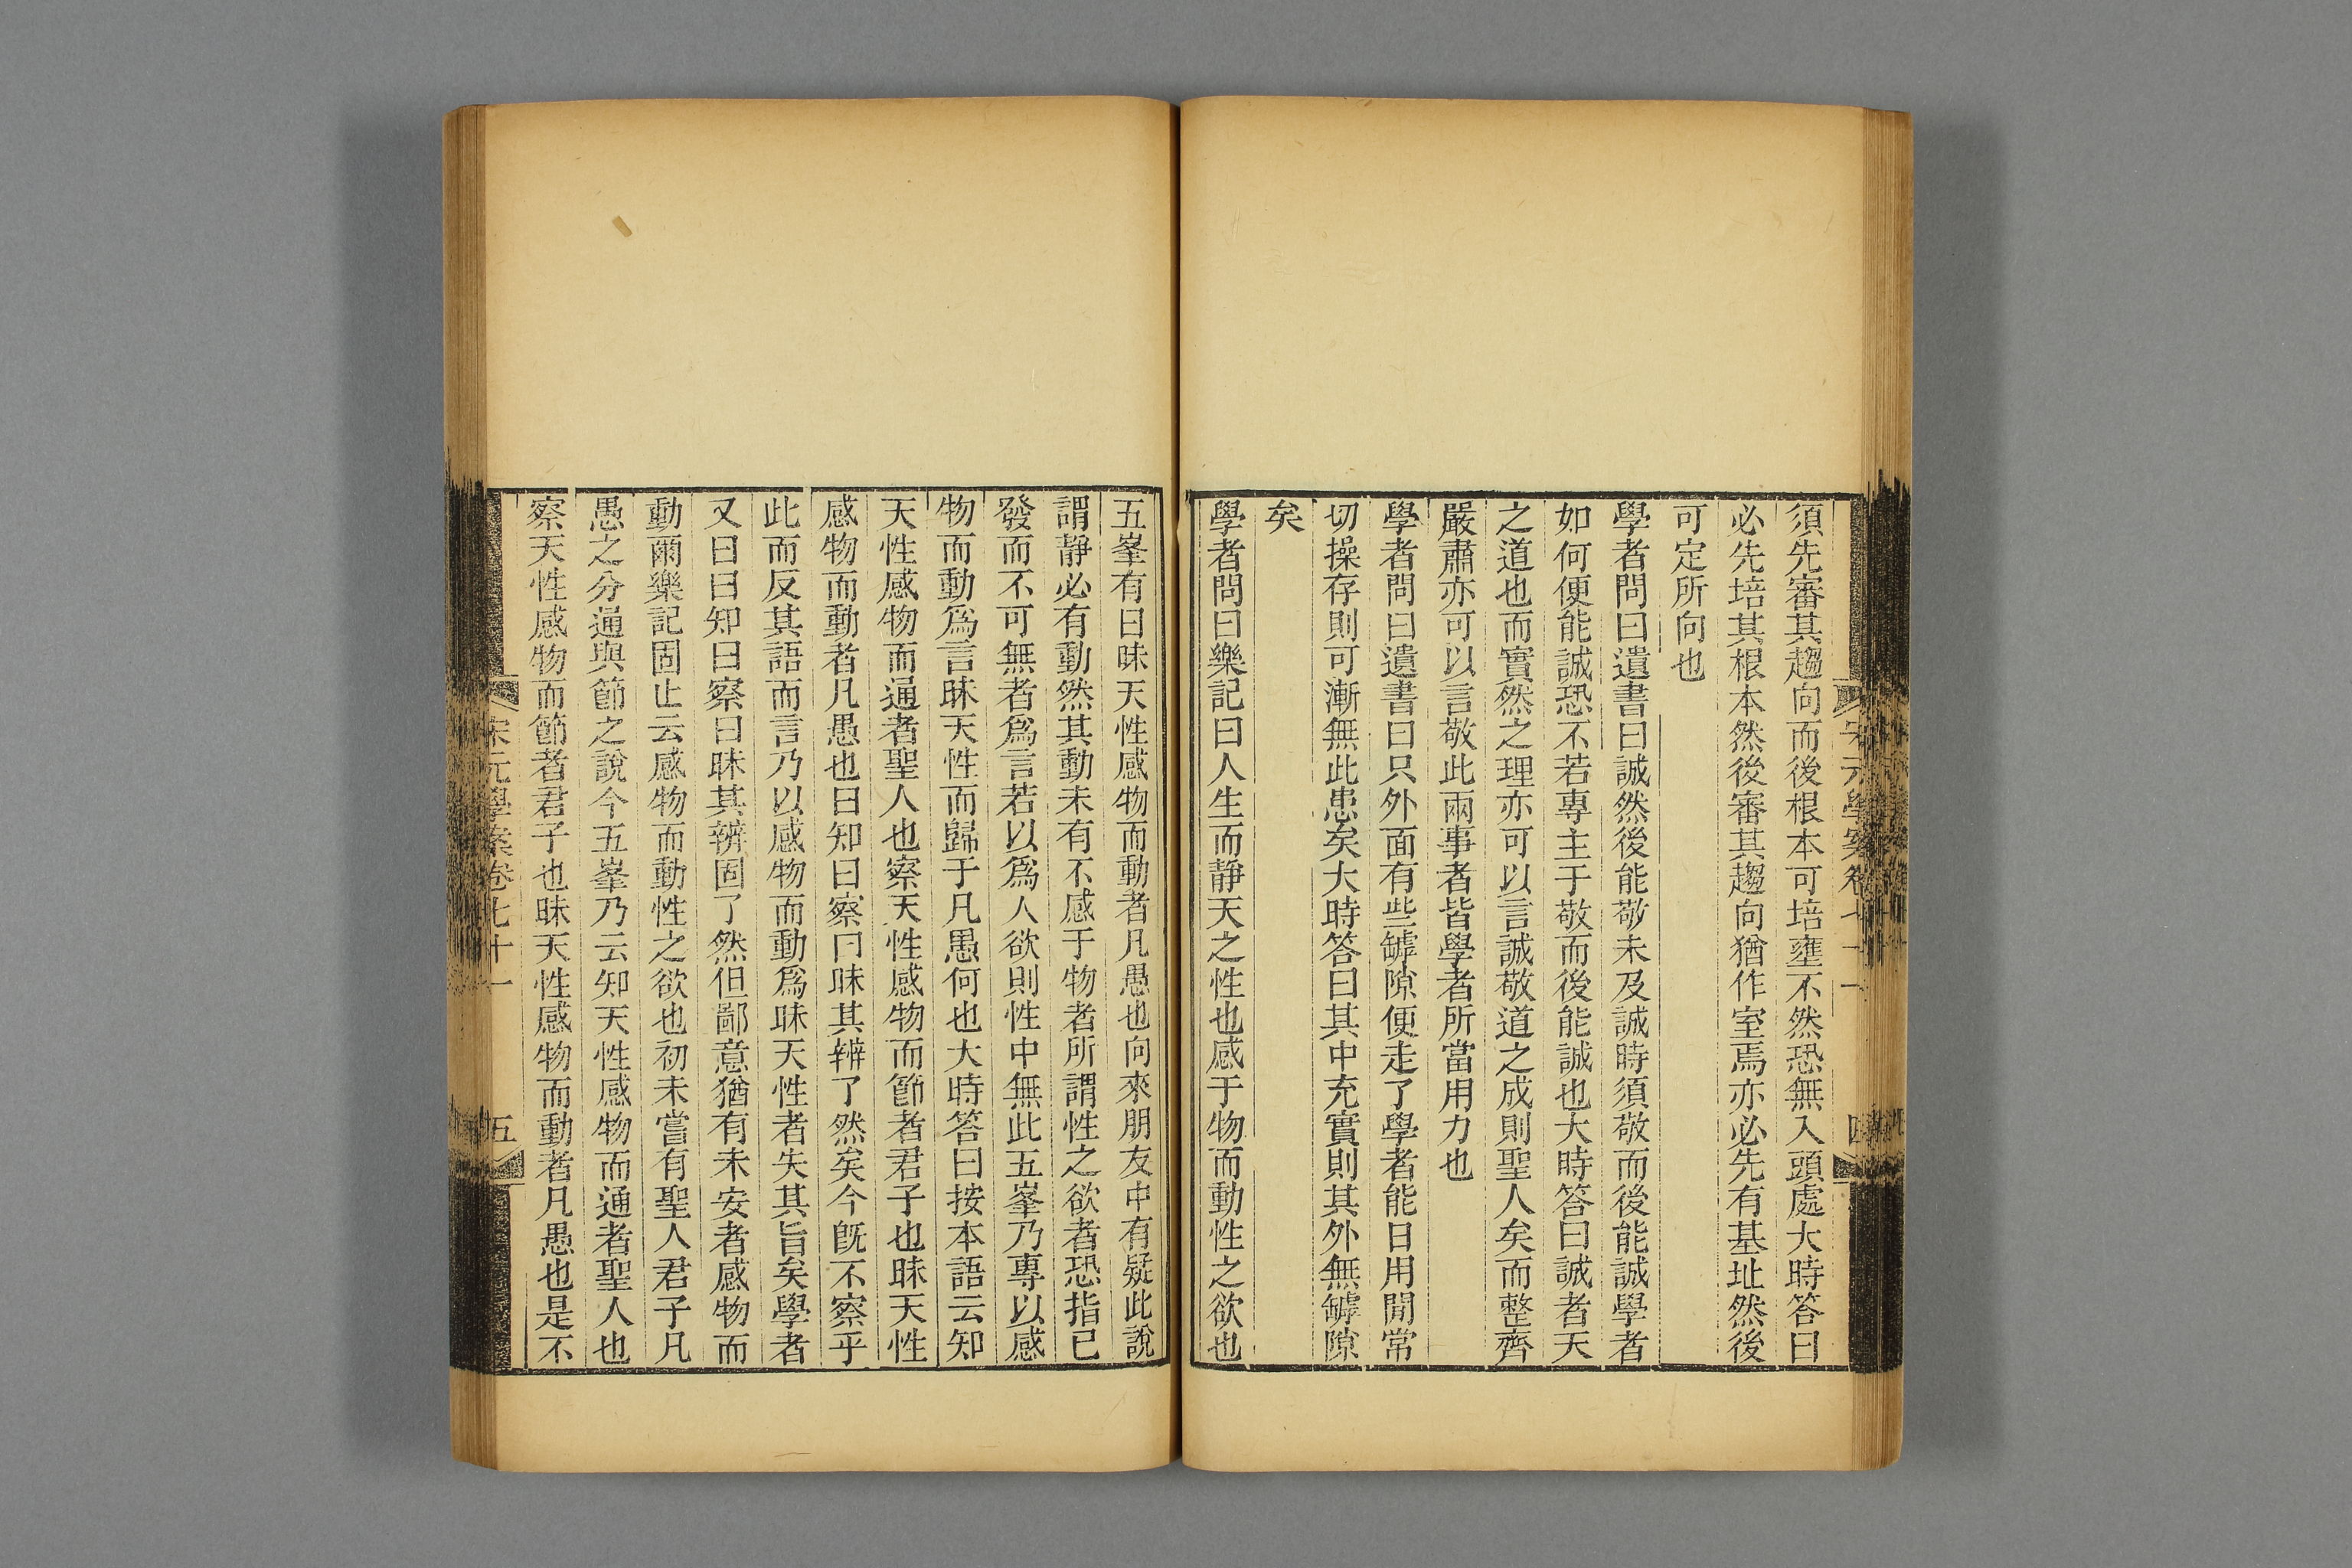 須先審其趨向而後根本可培壅不然恐無入頭處大時答曰
必先培其根本然後審其趨向猶作室焉亦必先有基址然後
可定所向也
學者問曰遺書曰誠然後能敬未及誠時須敬而後能誠學者
如何便能誠恐不若專主于敬而後能誠也大時答曰誠者天
之道也而實然之理亦可以言誠敬道之成則聖人矣而整齊
嚴肅亦可以言敬此兩事者皆學者所當用力也
學者問曰遺書曰只外面有些罅隙便走了學者能日用閒常
切操存則可漸無此患矣大時答曰其中充實則其外無罅隙
矣
學者問曰樂記曰人生而靜天之性也感于物而動性之欲也
宋元學案卷七十一
四
五峯有曰昧天性感物而動者凡愚也向來朋友中有疑此說
謂靜必有動然其動未有不感于物者所謂性之欲者恐指已
發而不可無者爲言若以爲人欲則性中無此五峯乃專以感
物而動爲言昧天性而歸于凡愚何也大時答曰按本語云知
天性感物而通者聖人也察天性感物而節者君子也昧天性
感物而動者凡愚也曰知曰察曰昧其辨了然矣今旣不察乎
此而反其語而言乃以感物而動爲昧天性者失其旨矣學者
又曰曰知曰察曰昧其辨固了然但鄙意猶有未安者感物而
動爾樂記固止云感物而動性之欲也初未嘗有聖人君子凡
愚之分通與節之說今五峯乃云知天性感物而通者聖人也
察天性感物而節者君子也昧天性感物而動者凡愚也是不
宋元學案卷七十一
五